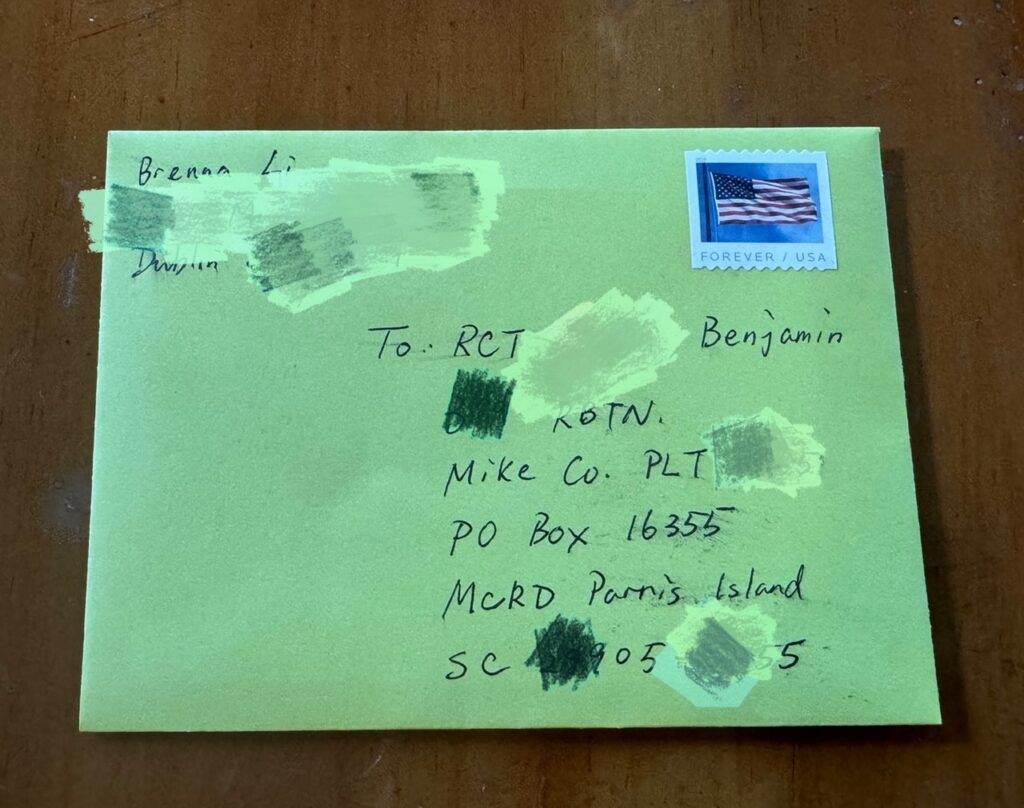 Brenna Li
Dublin
FOREVER / USA
To: RCT Benjamin
RBTN.
Mike Co. PLT
PO Box 16355
MCRD Parris Island
SC 905 55